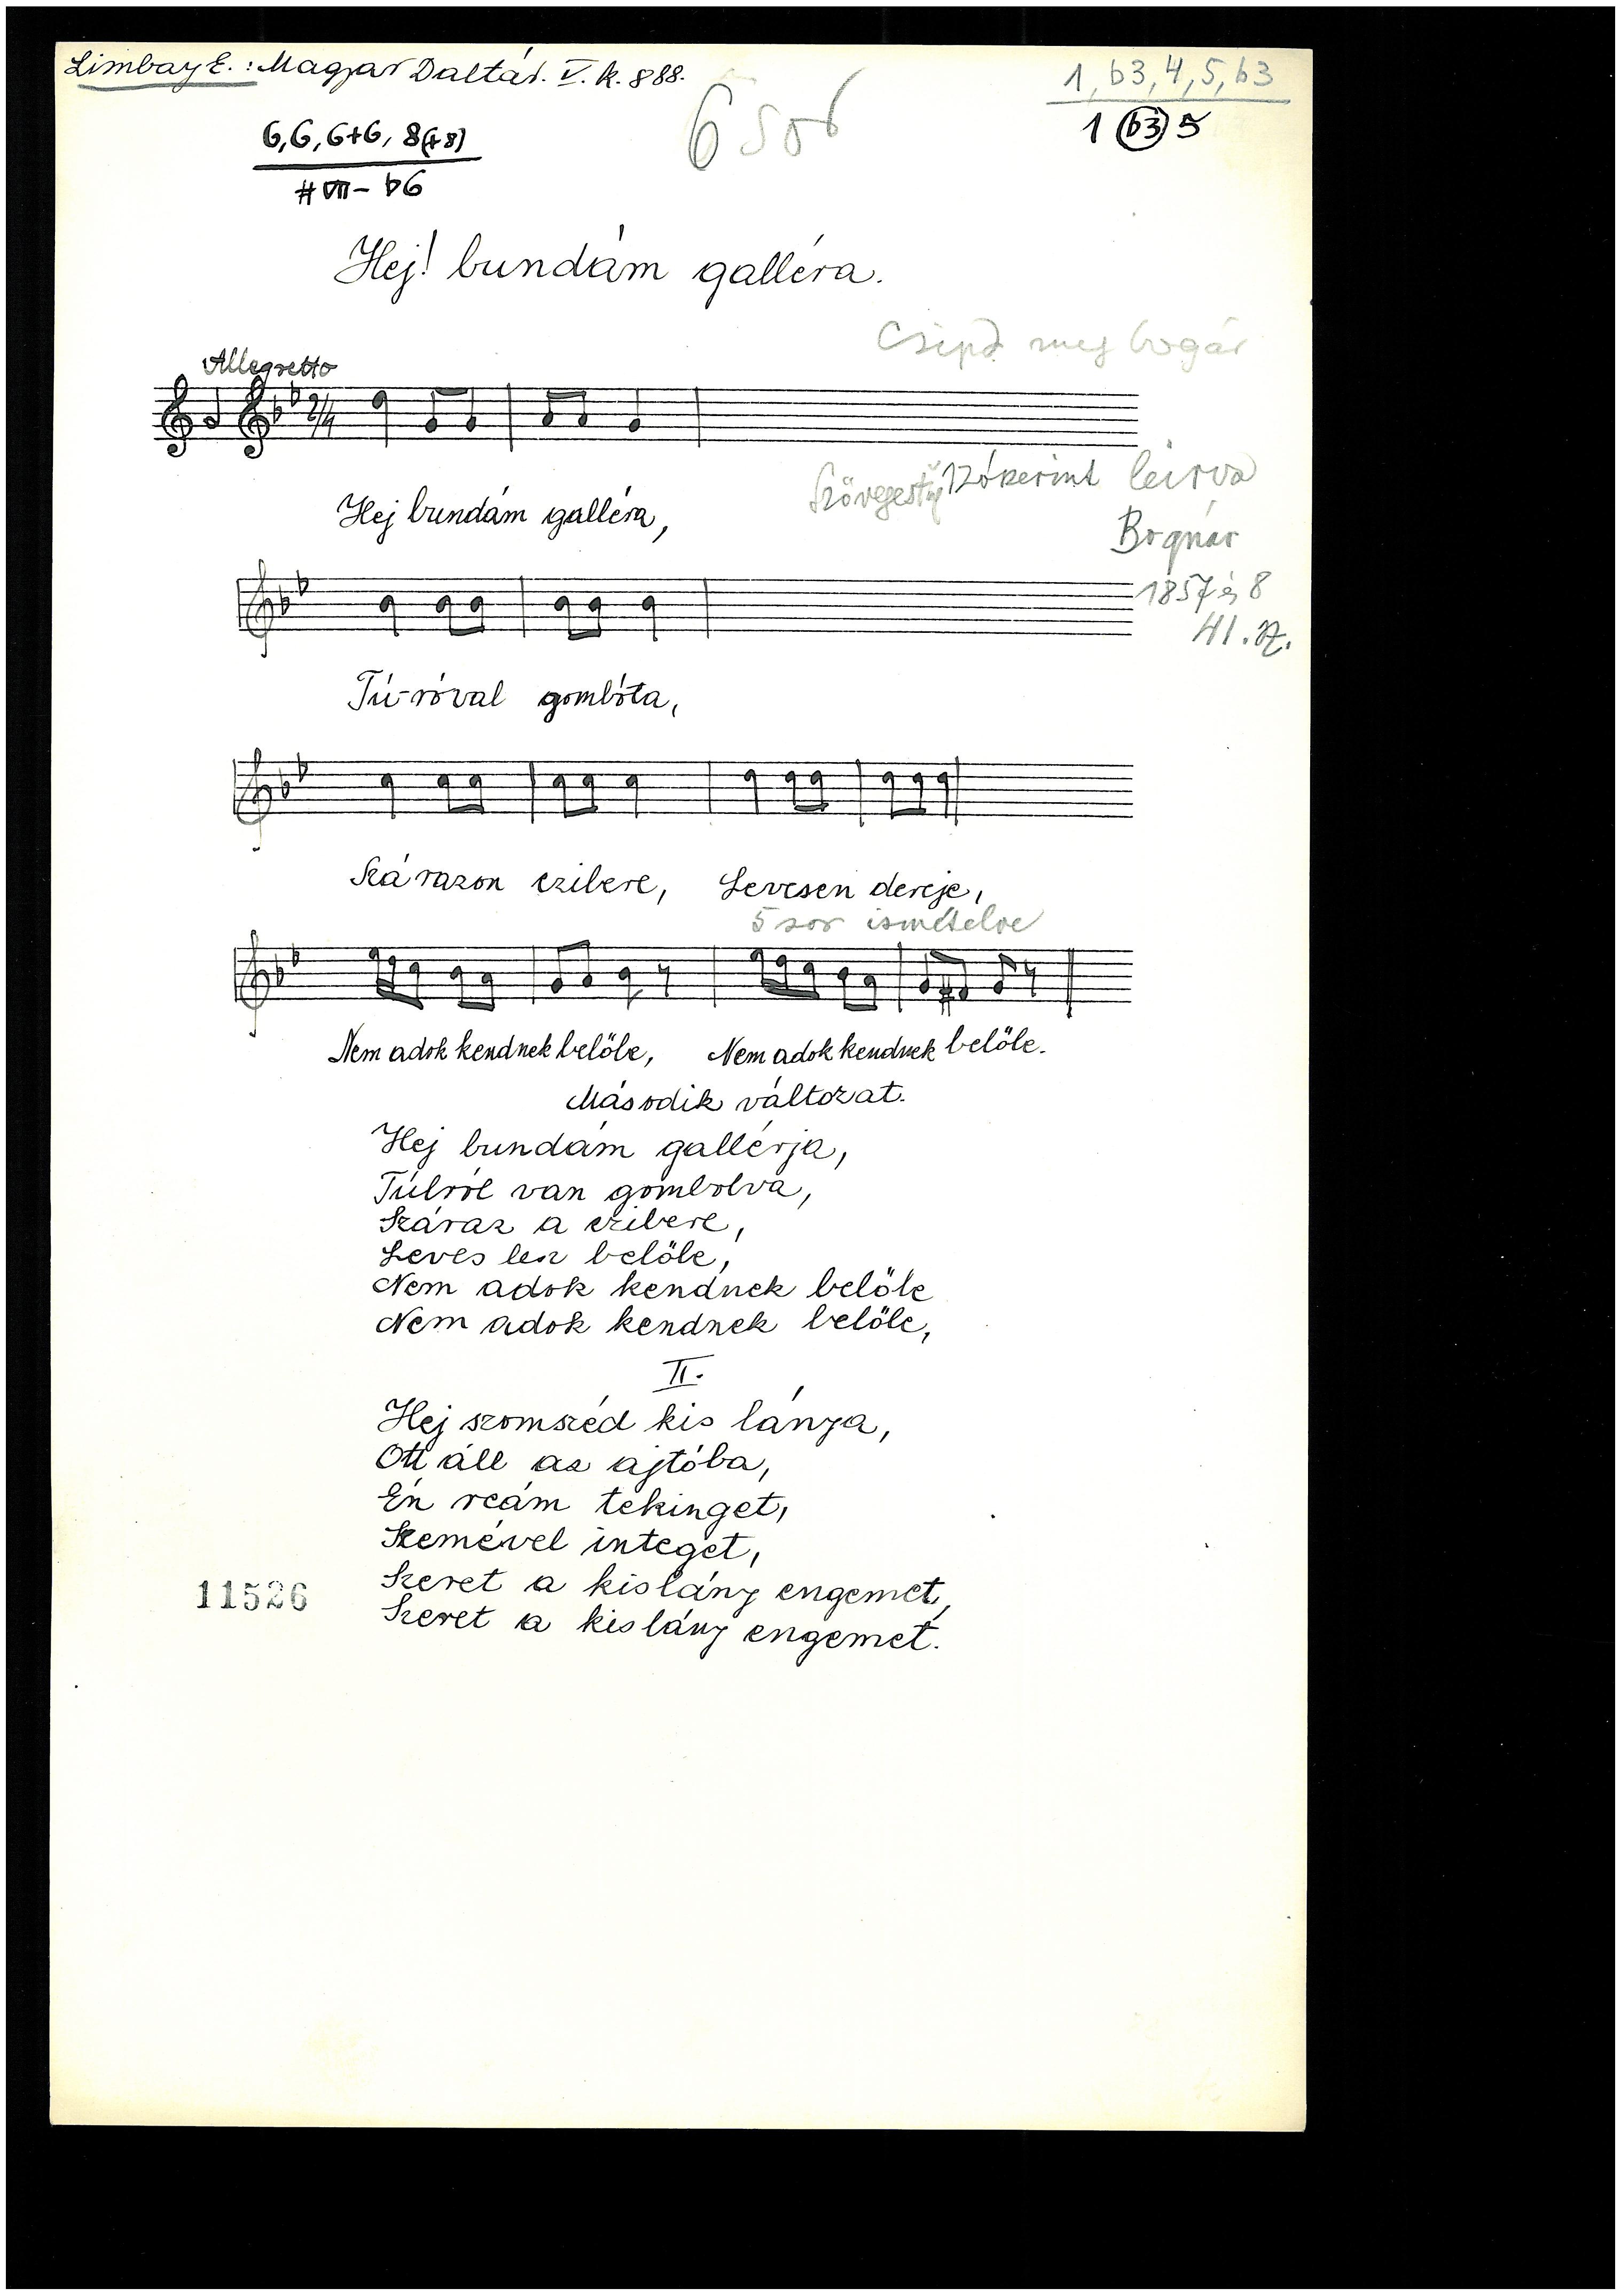 Limbay E.: Magyar Daltár. V. k. 888.
1, b3, 4, 5, b3
1 (b3) 5
6 sor
6,6,6+6, 8(+8)
#VII – b6
Hej! bundám galléra.
Csípd meg bogár
Allegretto
2/4
szerint leírva
Hej bundám galléra,
Bognár
1857 és 8
41. sz.
Tú-róval gombóta,
Szá razon czibere, Levesen dereje,
5 sor ismételve
Nem adok kendnek belőle, Nem adok kendnek belőle.
Második változat.
Hej bundám gallérja,
Túlról van gombolva,
Száraz a czibere,
Leves lesz belőle,
Nem adok kendnek belőle
Nem adok kendnek belőle,
II.
Hej szomszéd kis lánya,
Ott áll az ajtóba,
Én reám tekinget,
Szemével integet,
11526
Szeret a kislány engemet,
Szeret a kislány engemet.